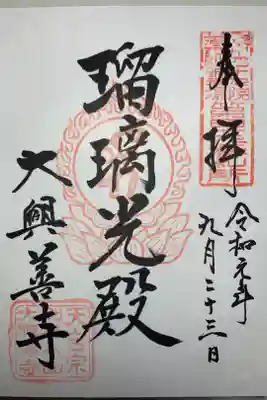 奉拝
令和元年
九月二十三日
瑠璃光殿
大興善寺